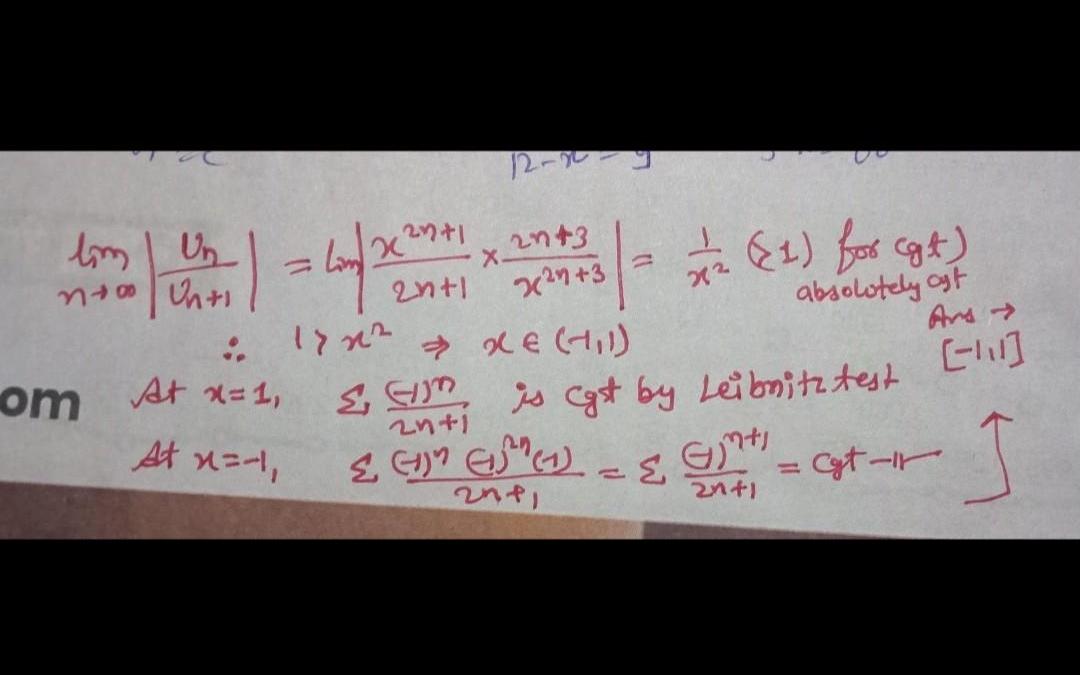 12-x = y
lim n→∞ |Un/Un+1| = lim |x^2n+1/2n+1 × 2n+3/x^2n+3| = 1/x² (>1) for cgt)
absolutely cgt
∴ 1 > x² ⇒ x ∈ (-1,1)
Ans → [-1,1]
om
At x=1, Σ (-1)^n/2n+1 is cgt by Leibnitz test
At x=-1, Σ (-1)^n (-1)^2n (-1)/2n+1 = Σ (-1)^n+1/2n+1 = cgt -11-